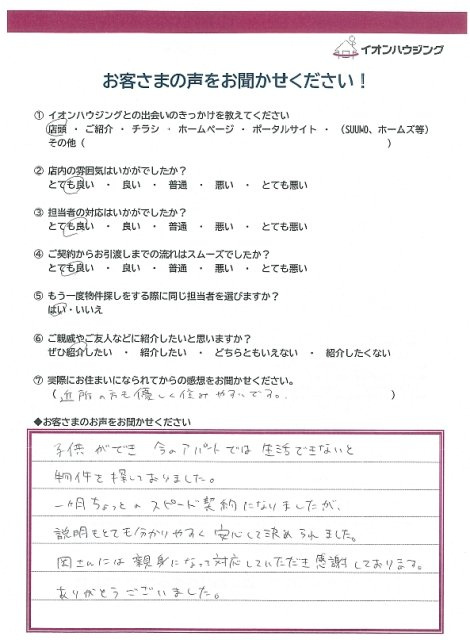 イオンハウジング
お客さまの声をお聞かせください！
① イオンハウジングとの出会いのきっかけを教えてください
店頭 ・ ご紹介 ・ チラシ ・ ホームページ ・ ポータルサイト ・ （SUUMO、ホームズ等）
その他（ ）
② 店内の雰囲気はいかがでしたか？
とても良い ・ 良い ・ 普通 ・ 悪い ・ とても悪い
③ 担当者の対応はいかがでしたか？
とても良い ・ 良い ・ 普通 ・ 悪い ・ とても悪い
④ ご契約からお引渡しまでの流れはスムーズでしたか？
とても良い ・ 良い ・ 普通 ・ 悪い ・ とても悪い
⑤ もう一度物件探しをする際に同じ担当者を選びますか？
はい・いいえ
⑥ ご親戚やご友人などに紹介したいと思いますか？
ぜひ紹介したい ・ 紹介したい ・ どちらともいえない ・ 紹介したくない
⑦ 実際にお住まいになられてからの感想をお聞かせください。
（ 近所の方も優しく住みやすいです。 ）
◆お客さまのお声をお聞かせください
子供ができ 今のアパートでは生活できないと
物件を探しておりました。
一ヶ月ちょっとのスピード契約になりましたが、
説明もとても分かりやすく安心して決められました。
岡さんには親身になって対応していただき感謝しております。
ありがとうございました。